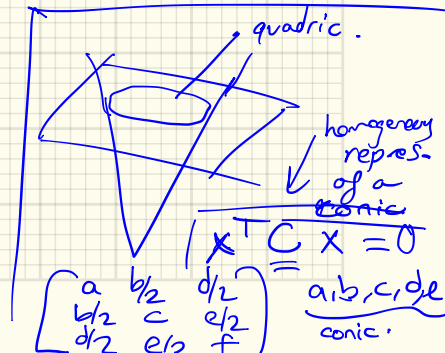 quadric.
homogeneous
repres-
of a
conic
x^T C x = 0
a b/2 d/2
b/2 c e/2
d/2 e/2 f
a,b,c,d,e
conic.